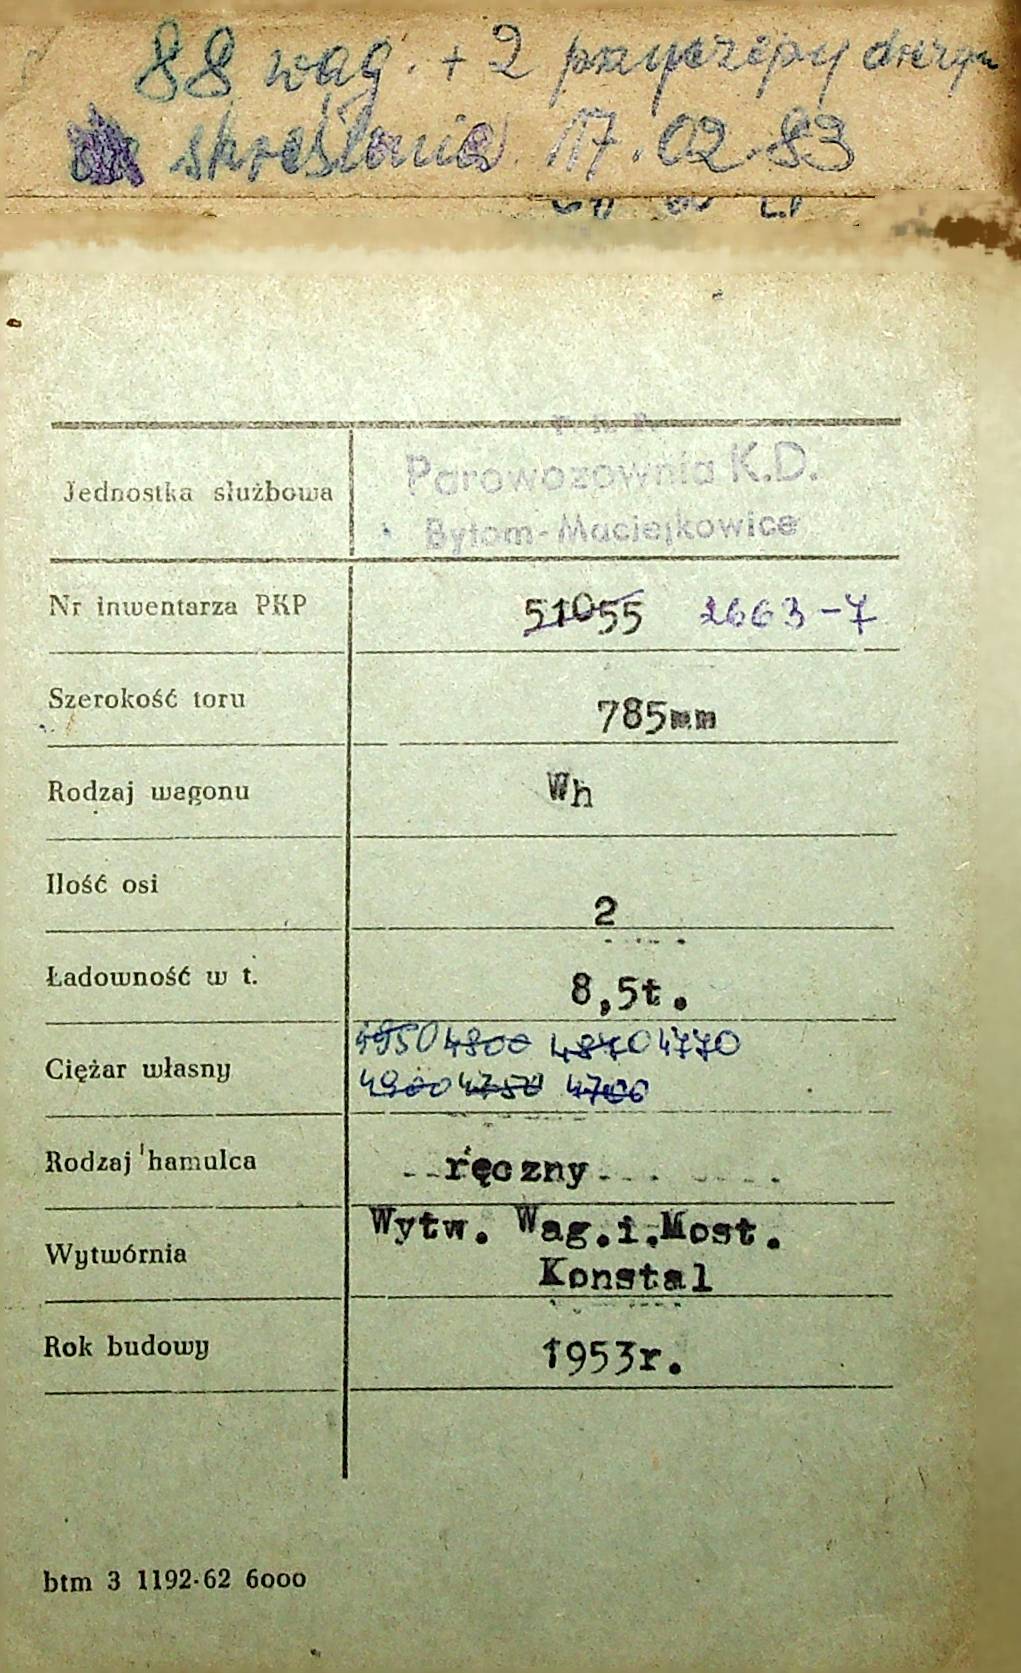 88 wag. + 2 przyczepy drezyn
skreślenia 17.02.83
P. K. P.
Parowozownia K.D.
Bytom-Maciejkowice
Jednostka służbowa
Nr inwentarza PKP 51055 2663-7
Szerokość toru 785mm
Rodzaj wagonu Wh
Ilość osi 2
Ładowność w t. 8,5t.
Ciężar własny 4950 4800 4870 4770
4900 4750 4700
Rodzaj hamulca ręczny
Wytwórnia Wytw. Wag.i.Most.
Konstal
Rok budowy 1953r.
btm 3 1192-62 6000